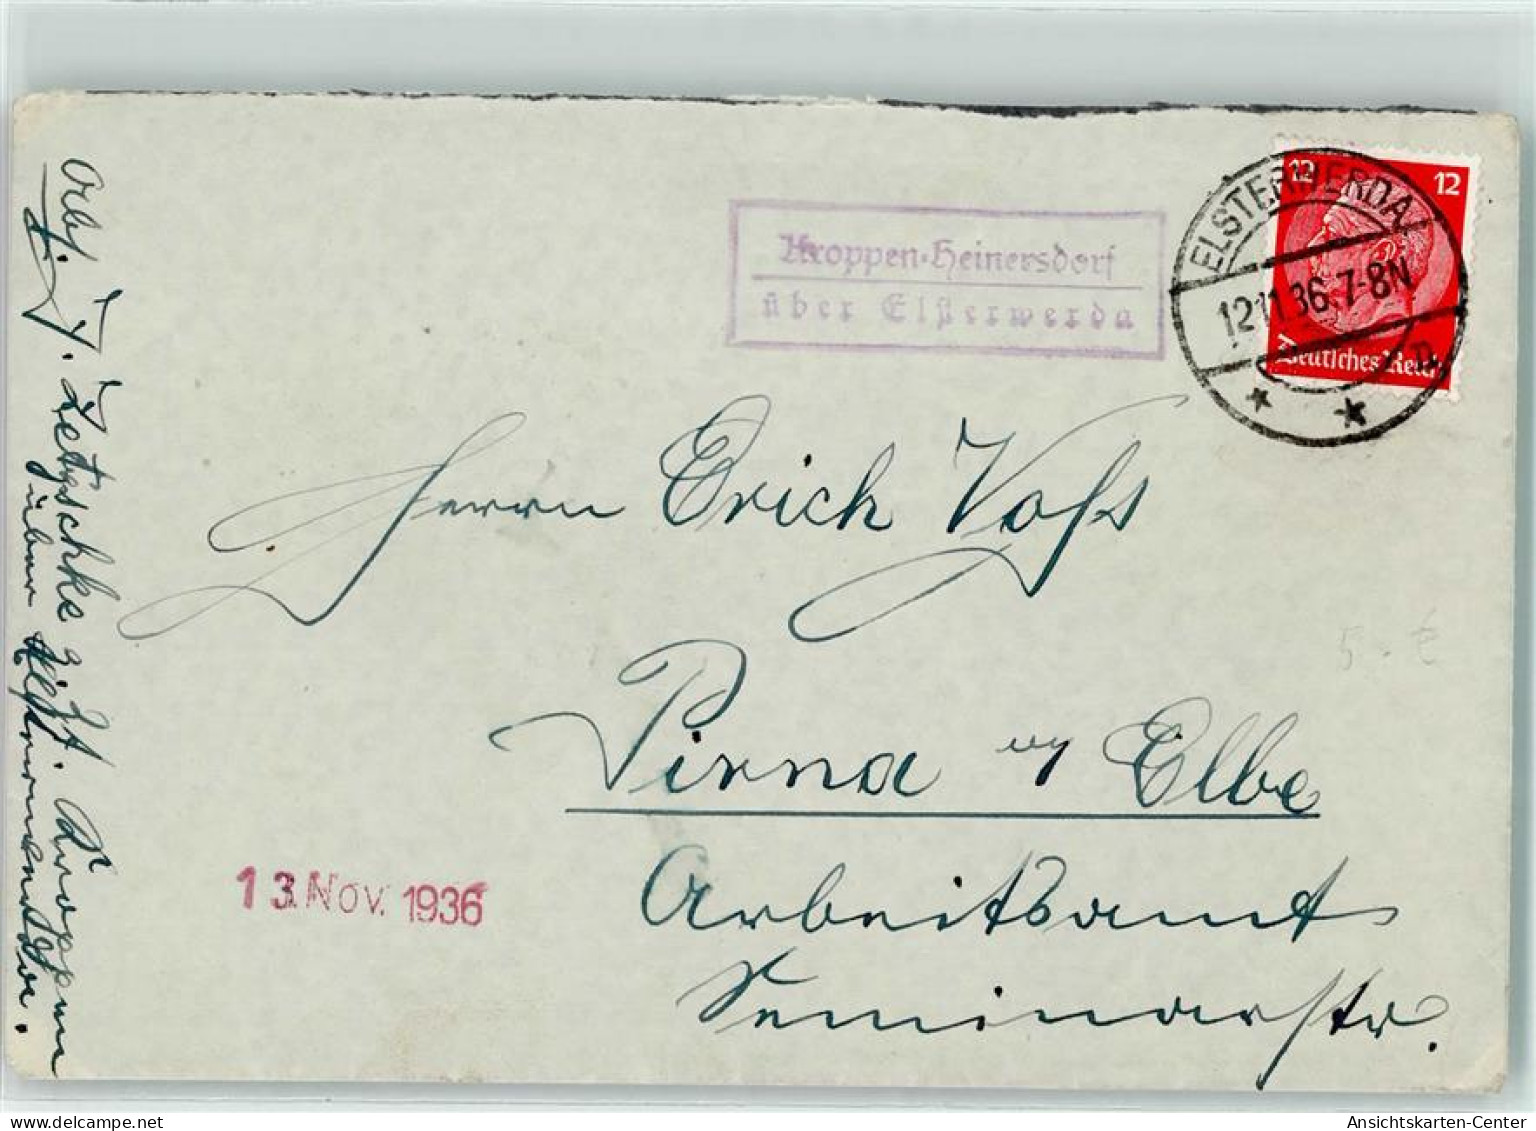 Kroppen-Heinersdorf
über Elsterwerda
12 12
Deutsches Reich
ELSTERWERDA
12.11.36.7-8N
Herrn Erich Voß
Pirna a/ Elbe
Arbeitsamt
Seminarstr.
13. Nov. 1936
Abs. J. Zetzschke z. Zt. Kroppen
über Elsterwerda.
5.-€
Ansichtskarten-Center